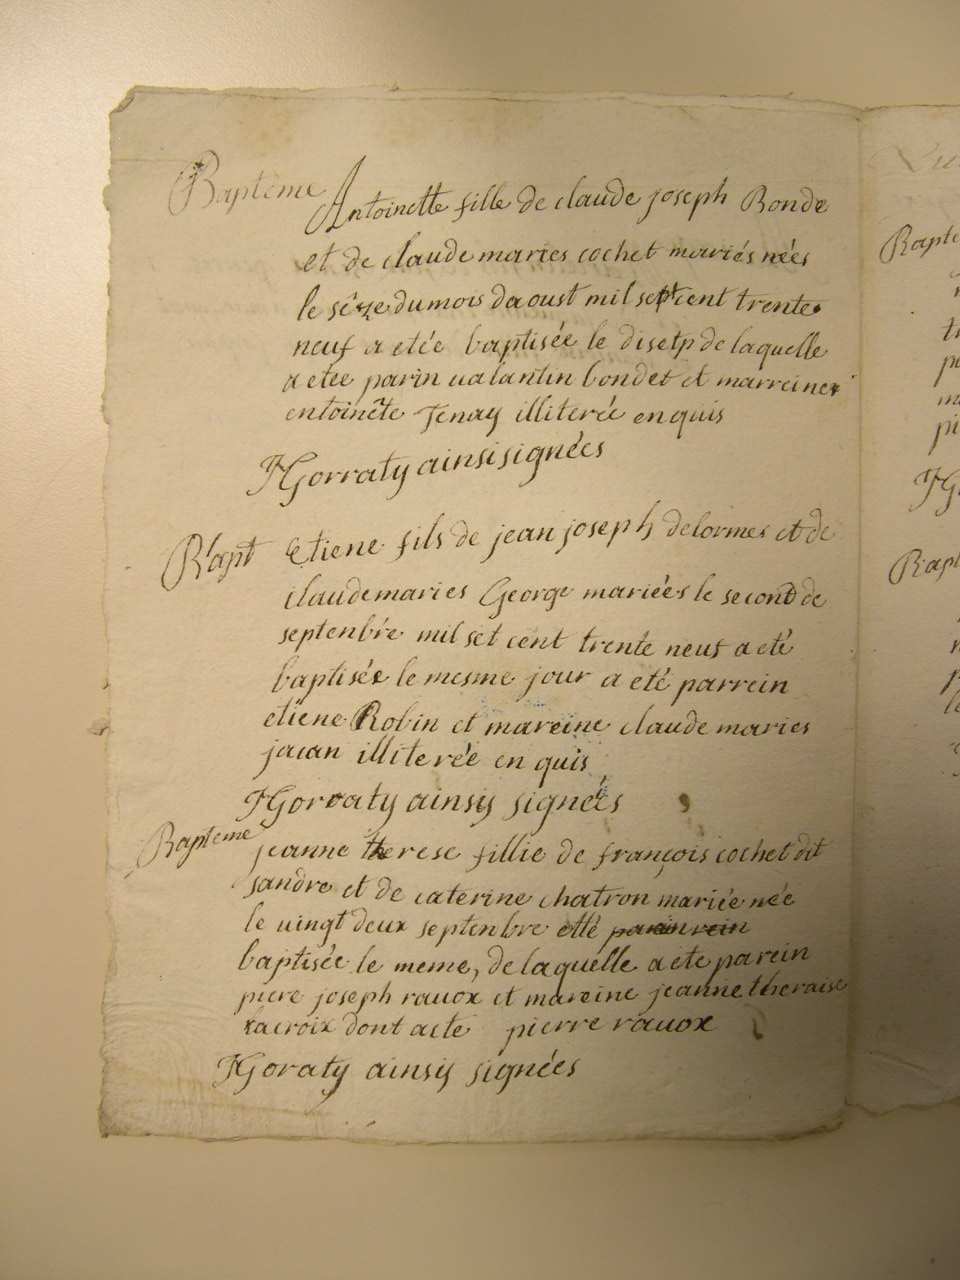 Bapteme Antoinette fille de claude joseph Bonde
et de claude maries cochet mariés nées
le sêze du mois daoust mil septcent trente
neuf a etée baptisée le disetp de laquelle
a etee parin ualantin bondet et marreine
entoinête Jenay illiterée enquis
JGorraty ainsi signées
Bapt Etiene fils de jean joseph delormes et de
claudemaries George mariées le second de
septenbre mil set cent trente neuf a eté
baptisée le mesme jour a eté parrein
etiene Robin et mareine claude maries
jacan illiterée en quis
JGorraty ainsy signées
Bapteme jeanne therese fillie de françois cochet dit
sandre et de caterine chatron mariée née
le uingt deux septenbre etté
baptisée le meme, de laquelle a ete parein
piere joseph rauox et mareine jeanne theraise
lacroix dont acte pierre rauox
JGoraty ainsy signées
Bapt
Bapt